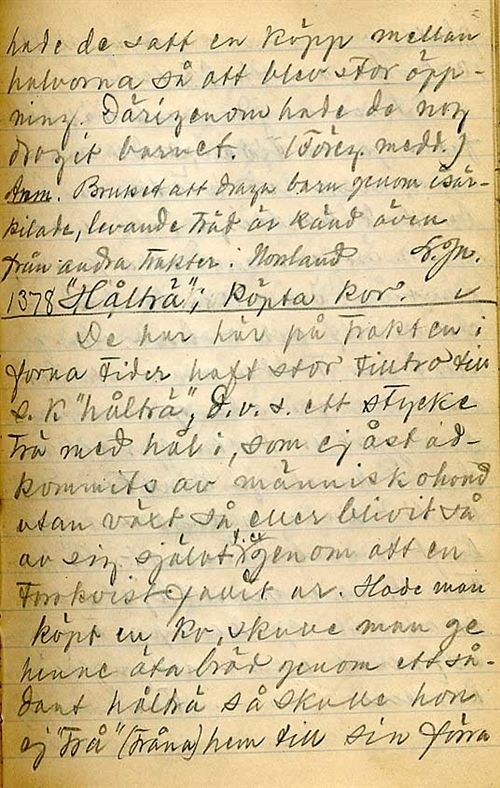 hade de satt en köpp mellan
halvorna så att blev stor öpp-
ning. Därigenom hade de nog
dragit barnet. (Föreg. medd.)
Anm. Bruket att draga barn genom isär-
kilade, levande träd är känd även
från andra trakter i Norrland
1378 "Hålträ"; köpta kor. ✓
De har här på trakten i
forna tider haft stor tilltro till
s. k "hålträ", d.v.s. ett stycke
trä med hål i, som ej åstad-
kommits av människohand
utan växt så eller blivit så
av sig självt genom att en
torrkvist farit ur. Hade man
köpt en ko, skulle man ge
henne äta bröd genom ett så-
dant hålträ så skulle hon
ej "trå" (tråna) hem till sin förra